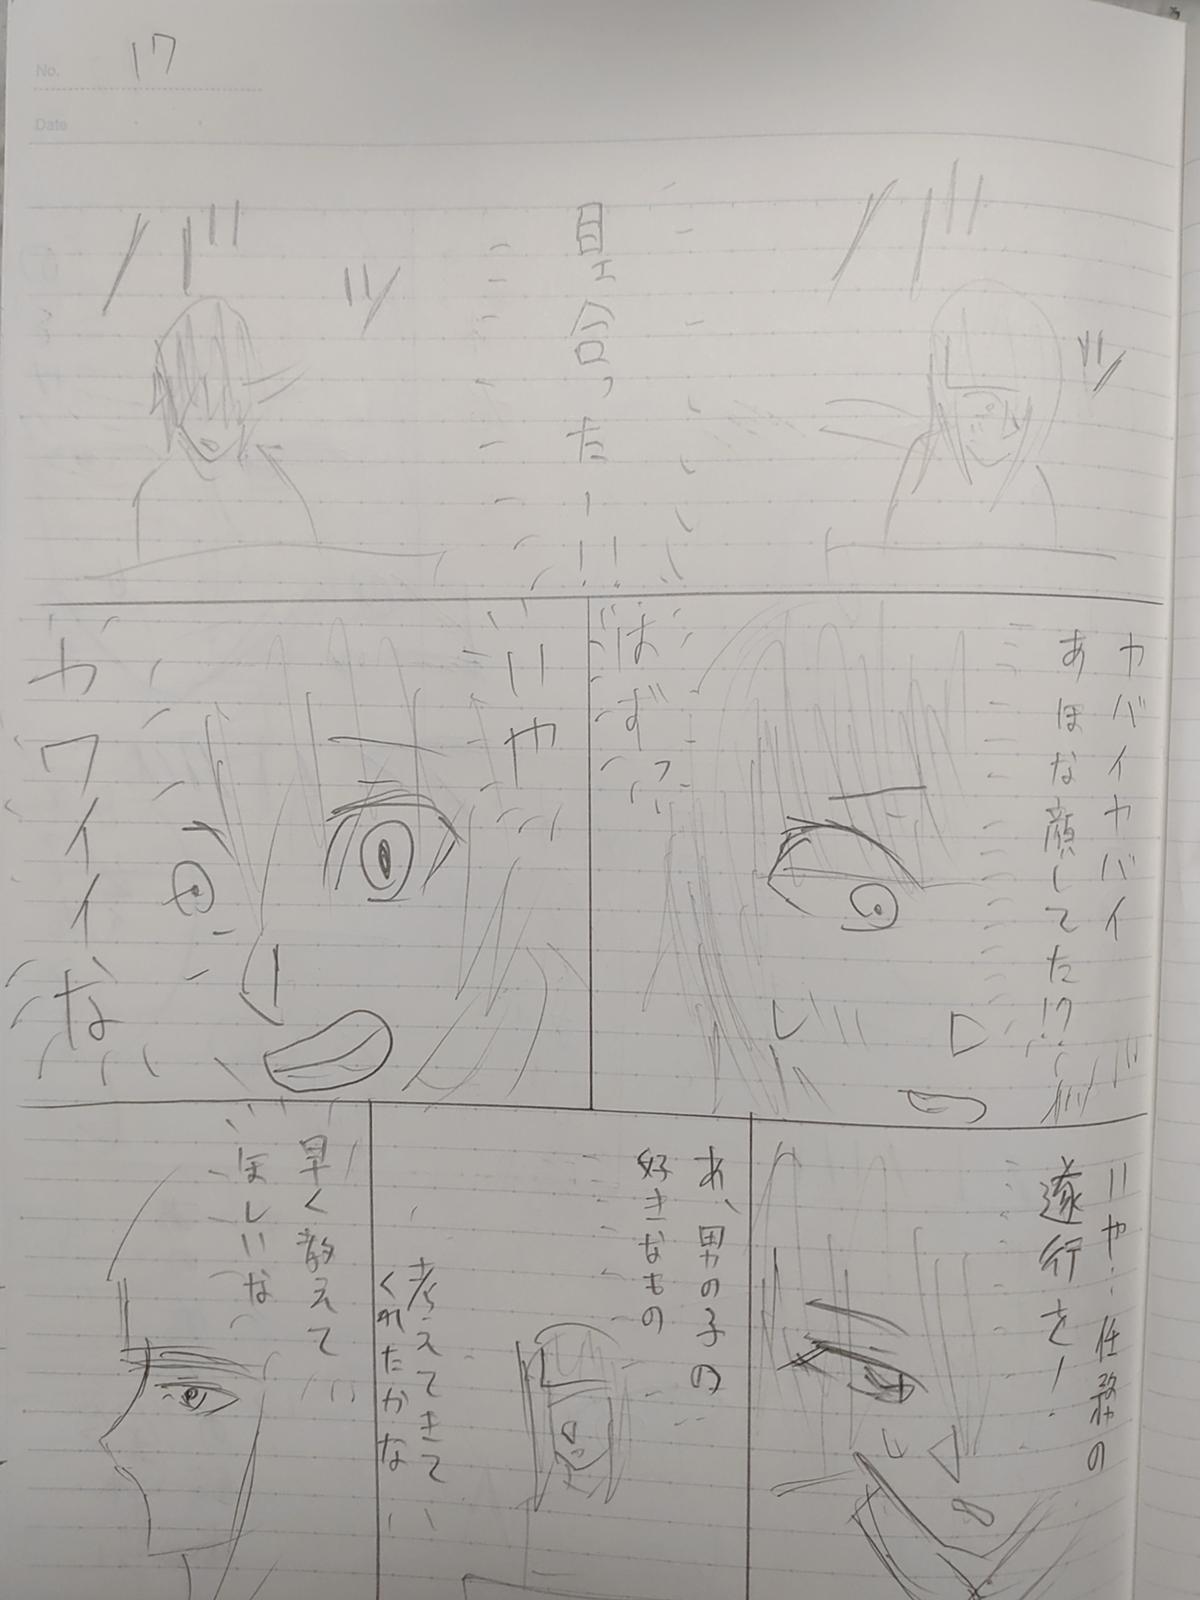 No. 17
Date
バッ
目エ合ったー!!
バッ
ヤバイヤバイ
あほな顔してた!?
はずっ
いや
カワイイな
いや、任務の
遂行を!
あ、男の子の
好きなもの
考えてきて
くれたかな
早く教えて
ほしいな